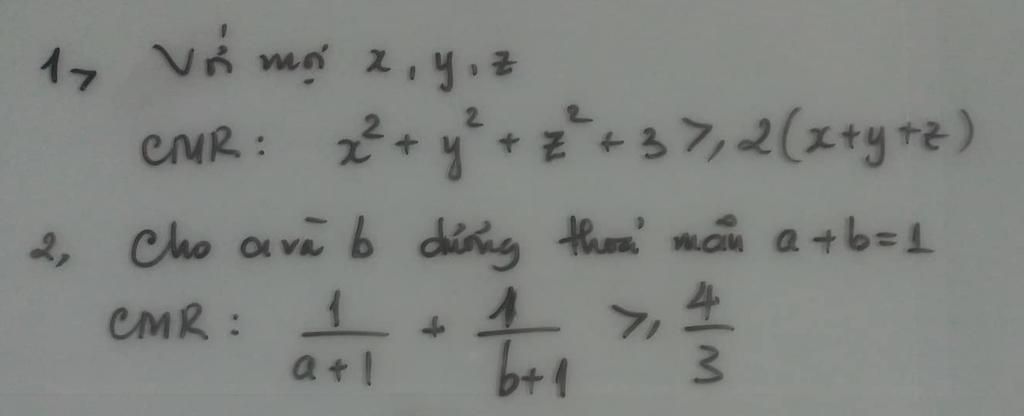 1, Với mọi x, y, z
CMR: x² + y² + z² + 3 ≥ 2(x+y+z)
2, Cho a và b dương thoả mãn a + b = 1
CMR: 1/(a+1) + 1/(b+1) ≥ 4/3